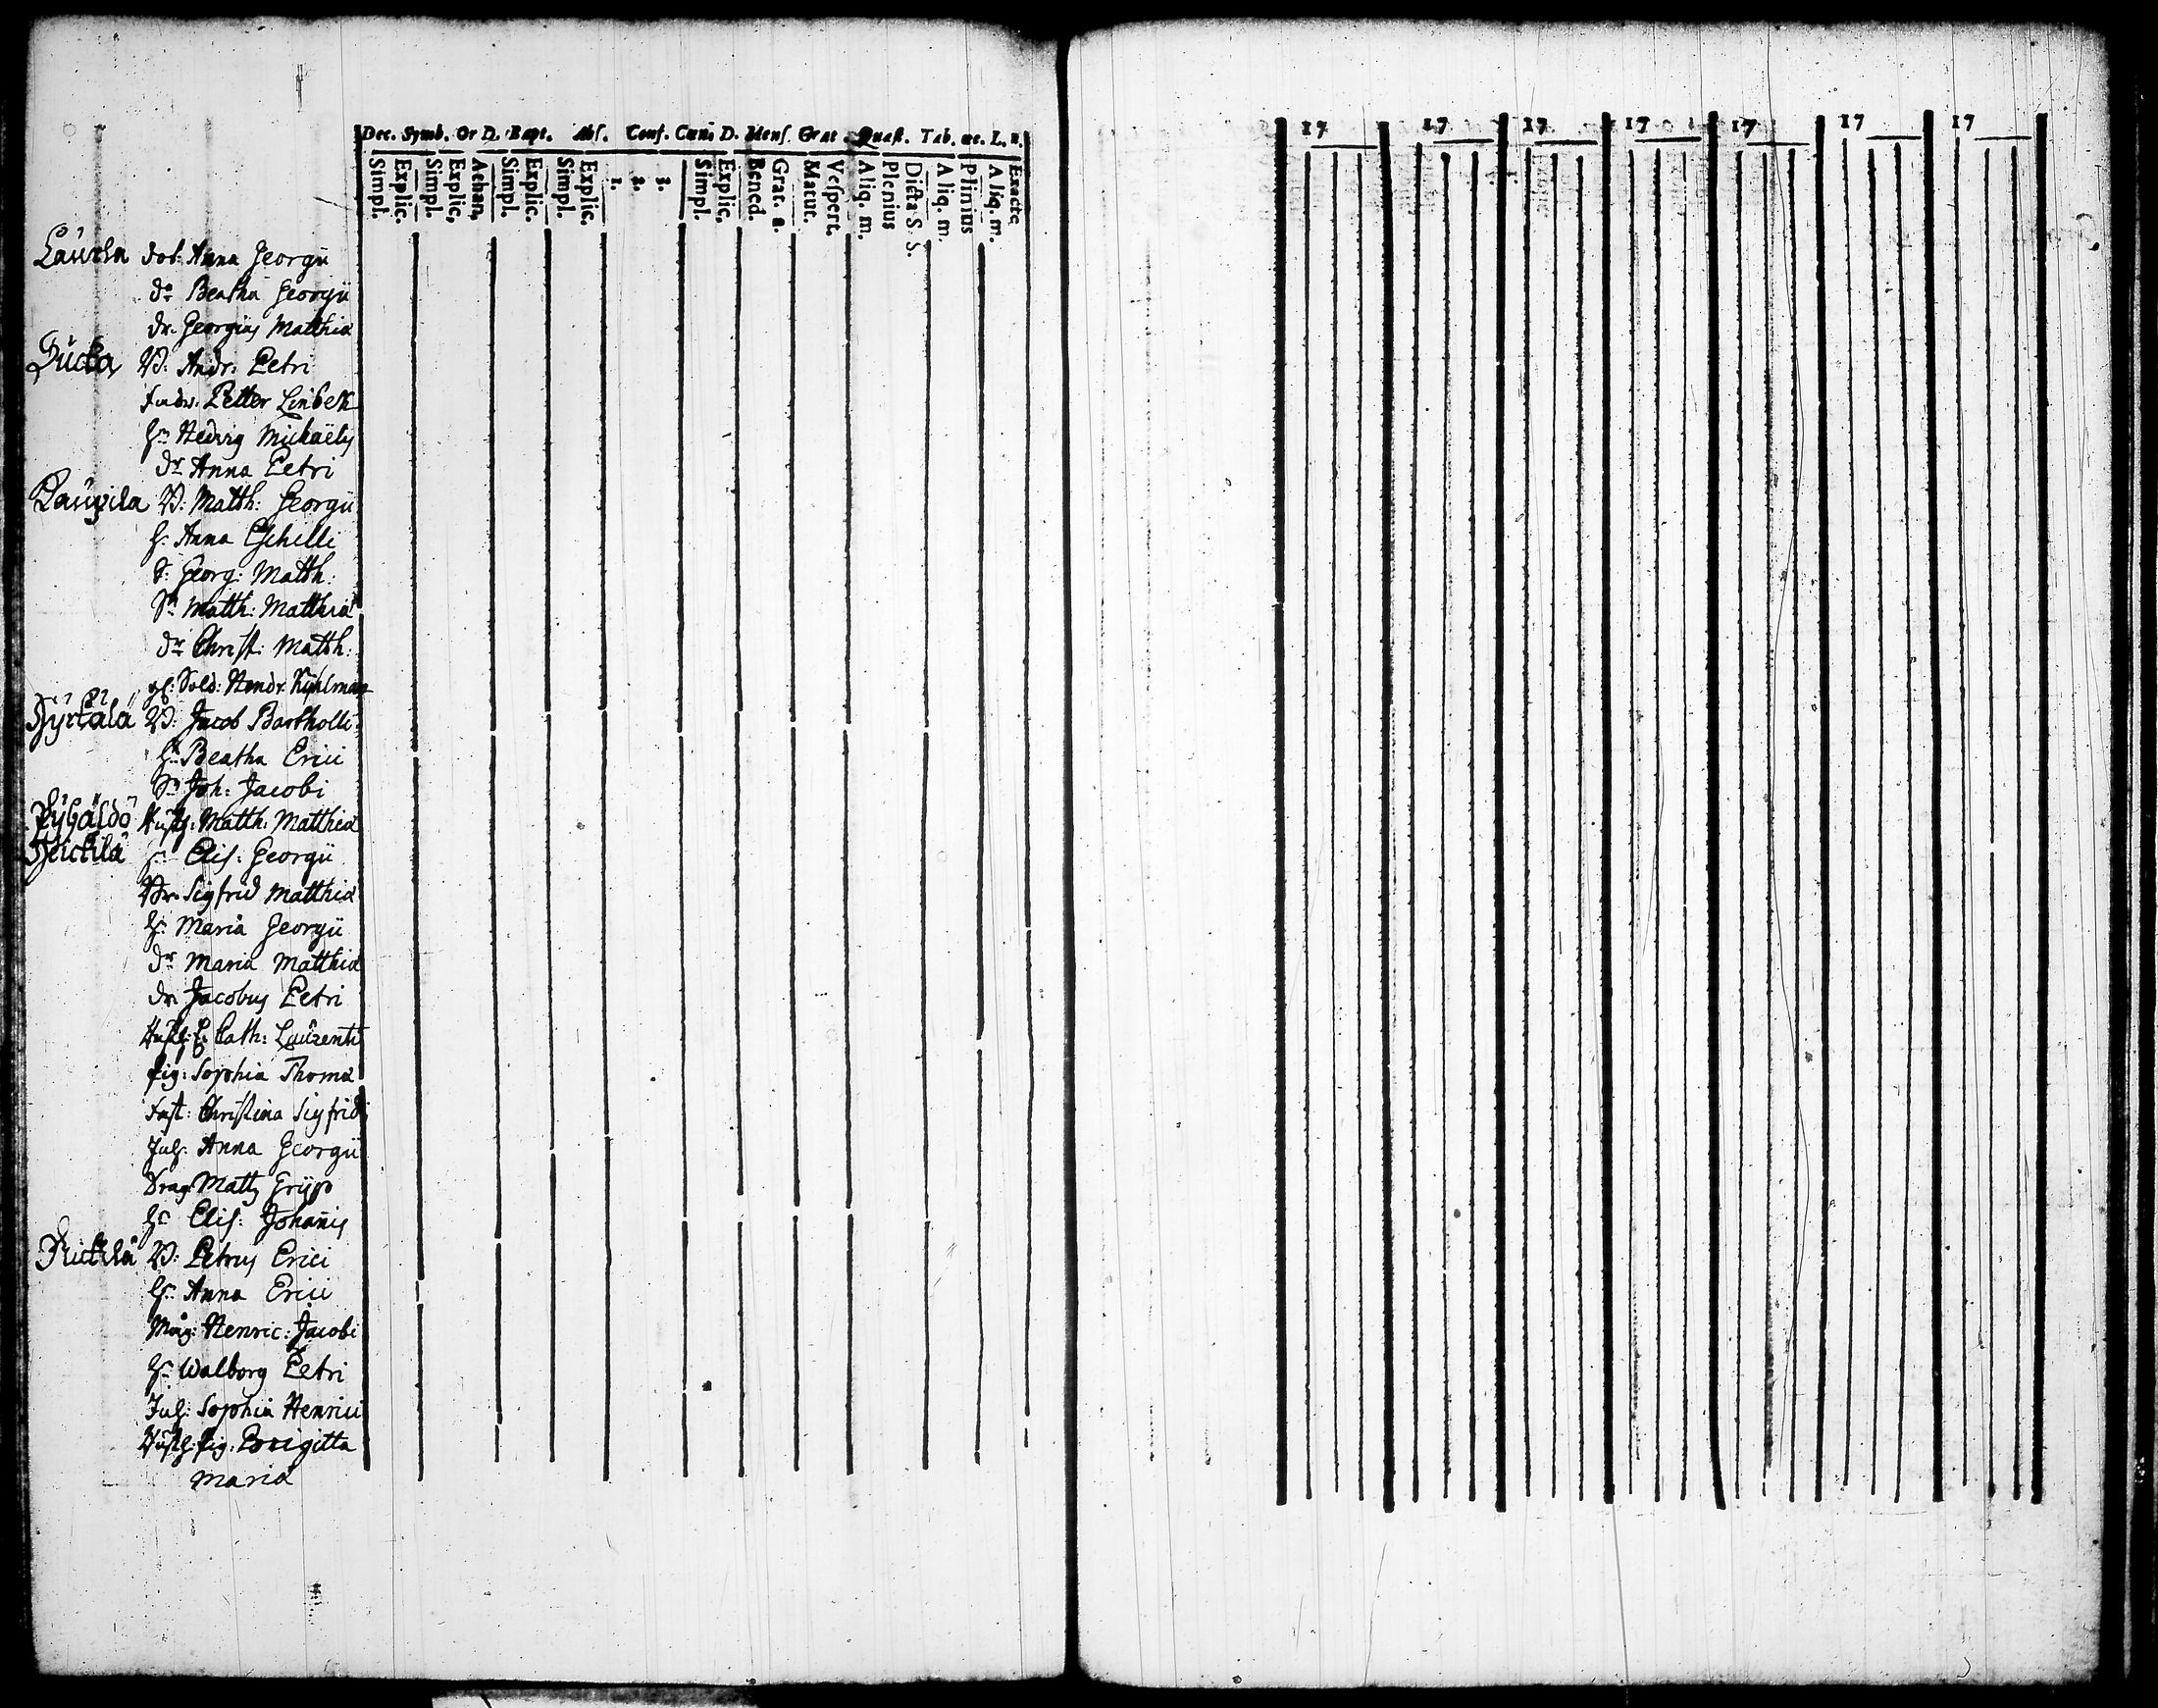 Dec. Symb. Or D. Bapt. Abs. Conf. Cœn. D. Mens. Grat. Quæst. Tab. œc. L. n.
Simpl. Explic. Simpl. Explic. Athan. Simpl. Explic. Simpl. Explic. 1. 2. 3. Simpl. Explic. Bened. Grat. a. Matut. Vespert. Aliq. m. Plenius Dicta S. S. Aliq. m. Plinius Aliq. m. Exacte
17 17 17 17 17 17 17
Laurla dot: Anna Georgii
dr Beatha Georgii
dr. Georgius Matthiæ
V: Andr: Petri
Petter Linbek
h: Hedvig Michaëlis
dr Anna Petri
Pauvila V: Matth: Georgii
h: Anna Eschilli
S: Georg: Matth:
Sn Matth: Matthiæ
dr Christ: Matth:
Sold: Hendr Kyhlman
V: Jacob Bartholli
h: Beatha Erici
Sn Joh: Jacobi
Pyhäldö Matth: Matthiæ
Heickilä h: Elis: Georgii
Br. Sigfrid Matthiæ
h: Maria Georgii
dr Maria Matthiæ
dr. Jacobus Petri
Cath: Laurenti
pig: Sophia Thomæ
Christina Sigfridi
Anna Georgii
Drag Matts Gripp
h: Elis: Johanis
V: Petrus Erici
h: Anna Erici
Måg: Henric: Jacobi
h: Walborg Petri
Sophia Henrici
pig: Brigitta
Maria